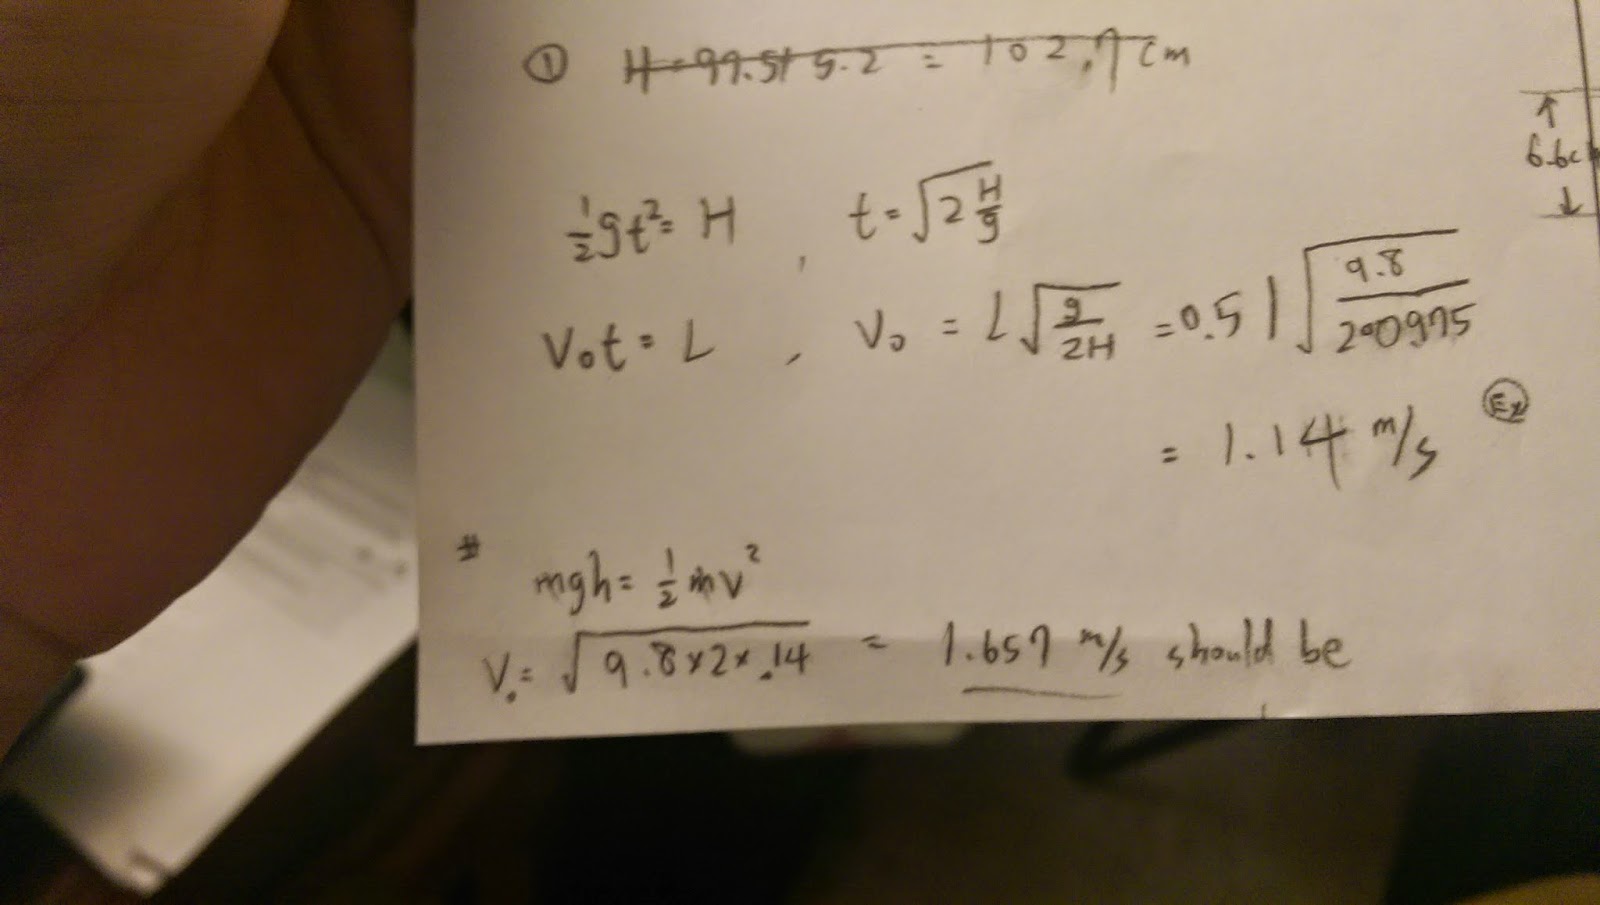 ① H=97.5+5.2 = 102.7 cm
↑
6.6c
↓
½gt²= H , t=√2H/g
V₀t = L , V₀ = L√g/2H =0.51√9.8/2*0.975
= 1.14 m/s Ex
# mgh= ½mv²
V₀= √9.8×2×.14 = 1.657 m/s should be